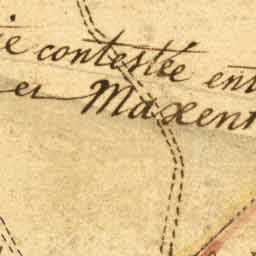 ie contestée ent
et Maxent